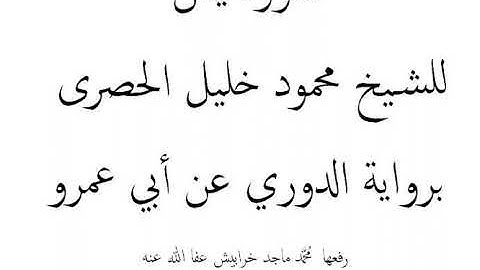 للشيخ محمود خليل الحصرى
برواية الدوري عن أبي عمرو
رفعها محمد ماجد خرابيش عفا الله عنه